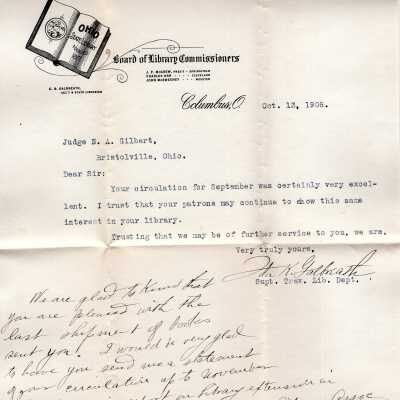 OHIO
Board of Library Commissioners
J. F. McGrew, Pres't - Springfield
Charles Orr - - - Cleveland
John McSweeney - - - Wooster
C. B. Galbreath,
Sec'y & State Librarian
Columbus, O. Oct. 13, 1905.
Judge E. A. Gilbert,
Bristolville, Ohio.
Dear Sir:
Your circulation for September was certainly very excel-
lent. I trust that your patrons may continue to show this same
interest in your library.
Trusting that we may be of further service to you, we are,
Very truly yours,
Galbreath
Supt. Trav. Lib. Dept.
We are glad to know that
you are pleased with the
last shipment of books
sent you. I would be very glad
to have you send me a statement
of your circulation up to November
on library extension in